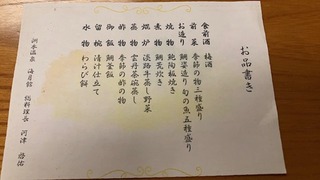 お品書き
食前酒 梅酒
前菜 季節の物三種盛り
お造り 鯛姿造り 旬の魚五種盛り
焼物 鮑陶板焼き
煮物 鯛荒炊き
焜炉 淡路牛蒸し野菜
蒸物 雲丹茶碗蒸し
酢物 季節の酢の物
御飯 鯛釜飯
留椀 清汁仕立て
水物 わらび餅
洲本温泉 海月館 総料理長 河津 皓佑